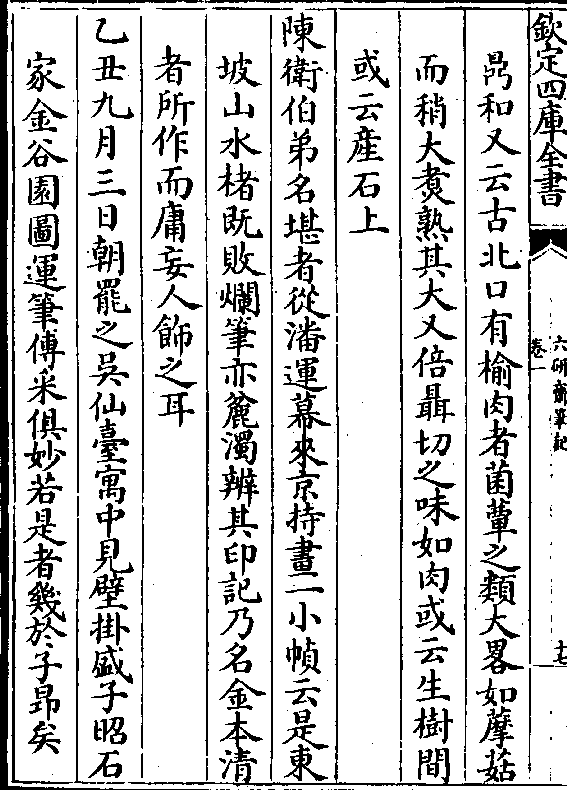 欽定四庫全書
六研齋筆記
卷一
十七
昺和又云古北口有榆肉者菌蕈之類大畧如蘑菇
而稍大煑熟其大又倍聶切之味如肉或云生樹間
或云産石上
陳衛伯弟名堪者從潘運幕來京持畫二小幀云是東
坡山水楮既敗爛筆亦麄濁辨其印記乃名金本清
者所作而庸妄人飾之耳
乙丑九月三日朝罷之吳仙臺寓中見壁掛盛子昭石
家金谷園圖運筆傅采俱妙若是者幾於子昂矣